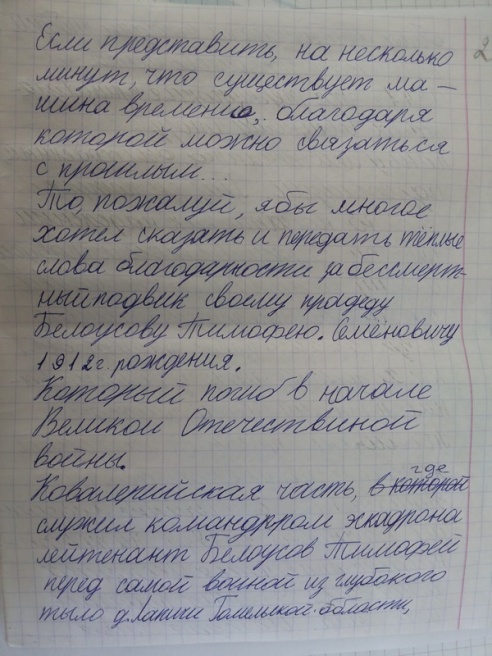 2
Если представить, на несколько
минут, что существует ма-
шина времени, благодаря
которой можно связаться
с прошлым...
То, пожалуй, я бы многое
хотел сказать и передать тёплые
слова благодарности за бессмерт-
ный подвик своему прадеду
Белоусову Тимофею. Семёновичу
1912г. рождения.
Который погиб в начале
Великой Отечествиной
войны.
Ковалерийская часть, в которой где
служил командрром эскадрона
лейтенант Белоусов Тимофей
перед самой войной из глубокого
тыло д. Лапичи Гомельской области,